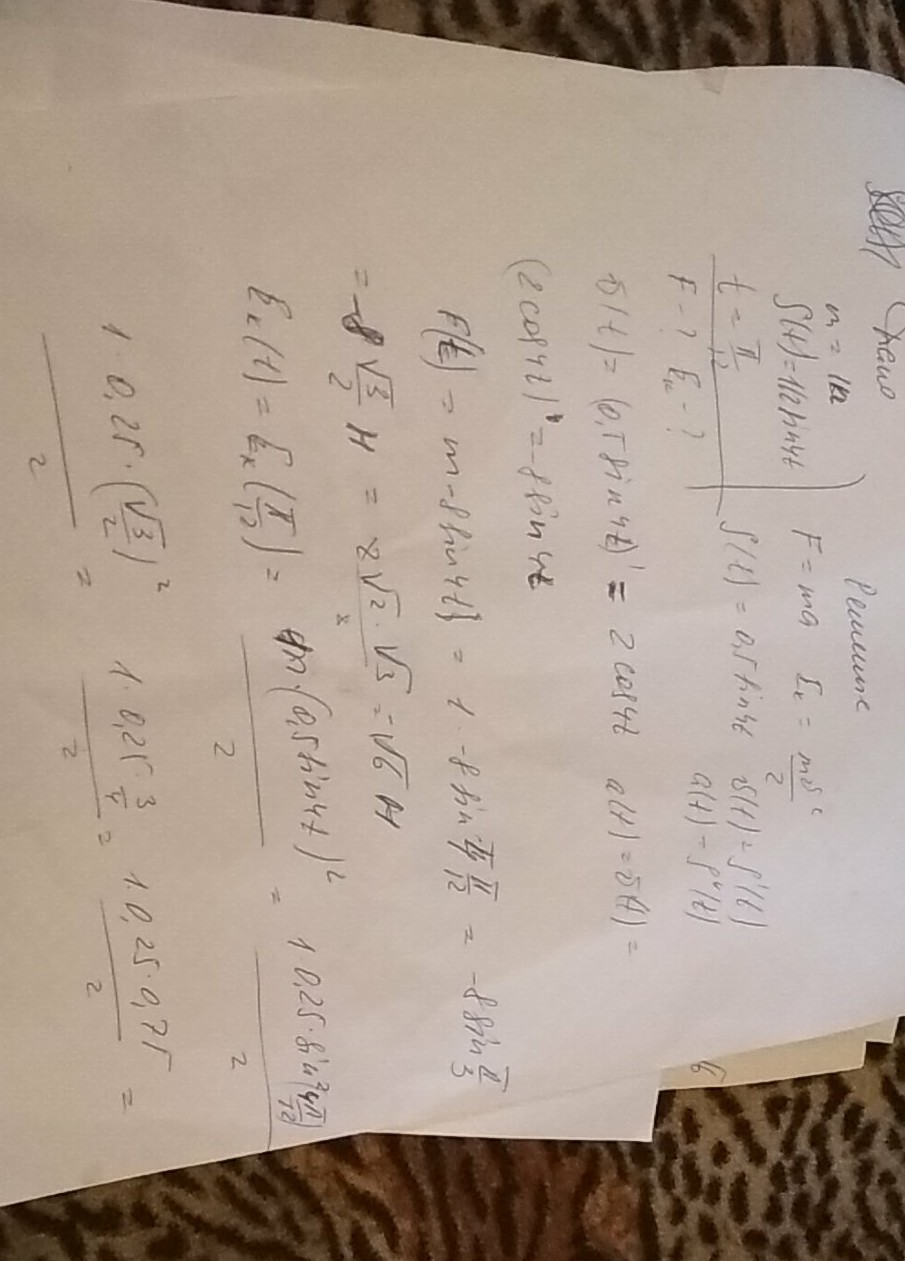 Дано
Решение
m = 1кг
S(t) = 1/2 sin 4t
t = π/12
F - ? Eк - ?
F = ma Eк = mv²/2
S(t) = 0,5 sin 4t v(t) = S'(t)
a(t) = S''(t)
v(t) = (0,5 sin 4t)' = 2 cos 4t a(t) = v'(t) =
(2 cos 4t)' = -8 sin 4t
F(t) = m · -8 sin 4t = 1 · -8 sin 4π/12 = -8 sin π/3
= -8 √3/2 Н
Eк(t) = Eк(π/12) = m·(0,5 sin 4t)²/2 = 1·0,25·sin²(4π/12)/2
1·0,25·(√3/2)²/2 = 1·0,25·3/4/2 = 1·0,25·0,75/2 =
6